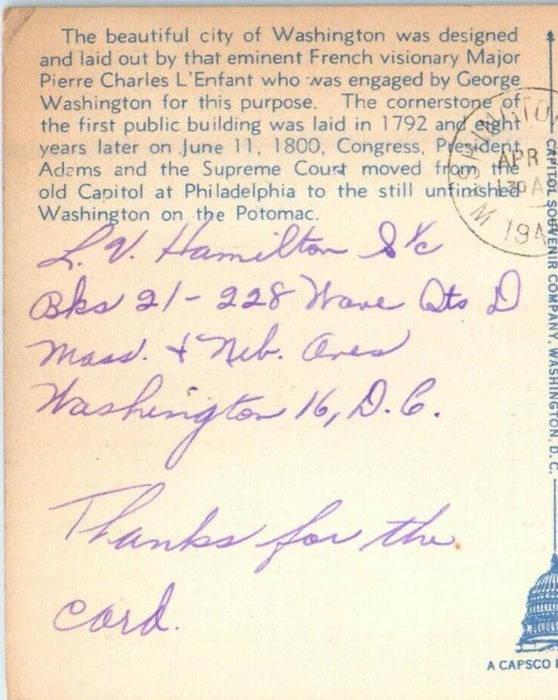 The beautiful city of Washington was designed
and laid out by that eminent French visionary Major
Pierre Charles L'Enfant who was engaged by George
Washington for this purpose. The cornerstone of
the first public building was laid in 1792 and eight
years later on June 11, 1800, Congress, President
Adams and the Supreme Court moved from the
old Capitol at Philadelphia to the still unfinished
Washington on the Potomac.
L. V. Hamilton S1/c
Bks 21-228 Wave Qts D
Mass. & Neb. Aves
Washington 16, D.C.
Thanks for the
card.
WASHINGTO
APR
30 A
M 194
CAPITOL SOUVENIR COMPANY, WASHINGTON, D. C.
A CAPSCO